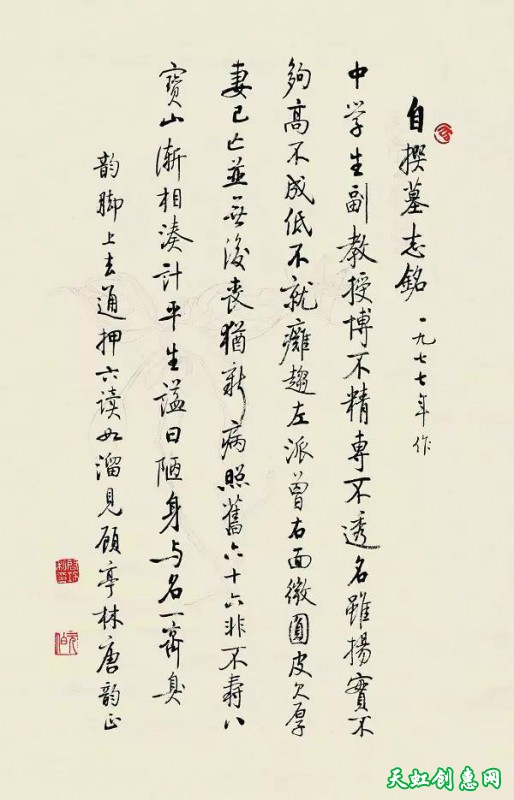 自撰墓志銘 一九七七年作
中学生副教授博不精專不透名雖揚實不
夠高不成低不就癱趨左派曾右面微圓皮欠厚
妻已亡並無後喪猶新病照舊六十六非不壽八
寶山漸相湊計平生謚曰陋身与名一齊臭
韵脚上去通押六读如溜見顾亭林唐韵正
天虹创惠网